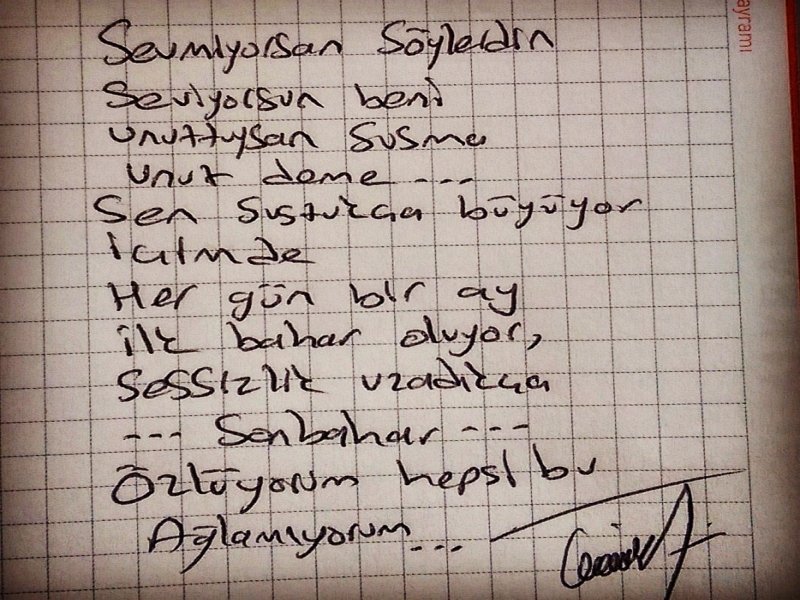 Sevmiyorsan Söylerdin
Seviyorsun beni
unuttuysan susma
unut deme ---
Sen sustukça büyüyor
içimde
Her gün bir ay
ilk bahar oluyor,
sessizlik uzadıkça
--- Sonbahar ---
Özlüyorum hepsi bu
Ağlamıyorum...
ayramı